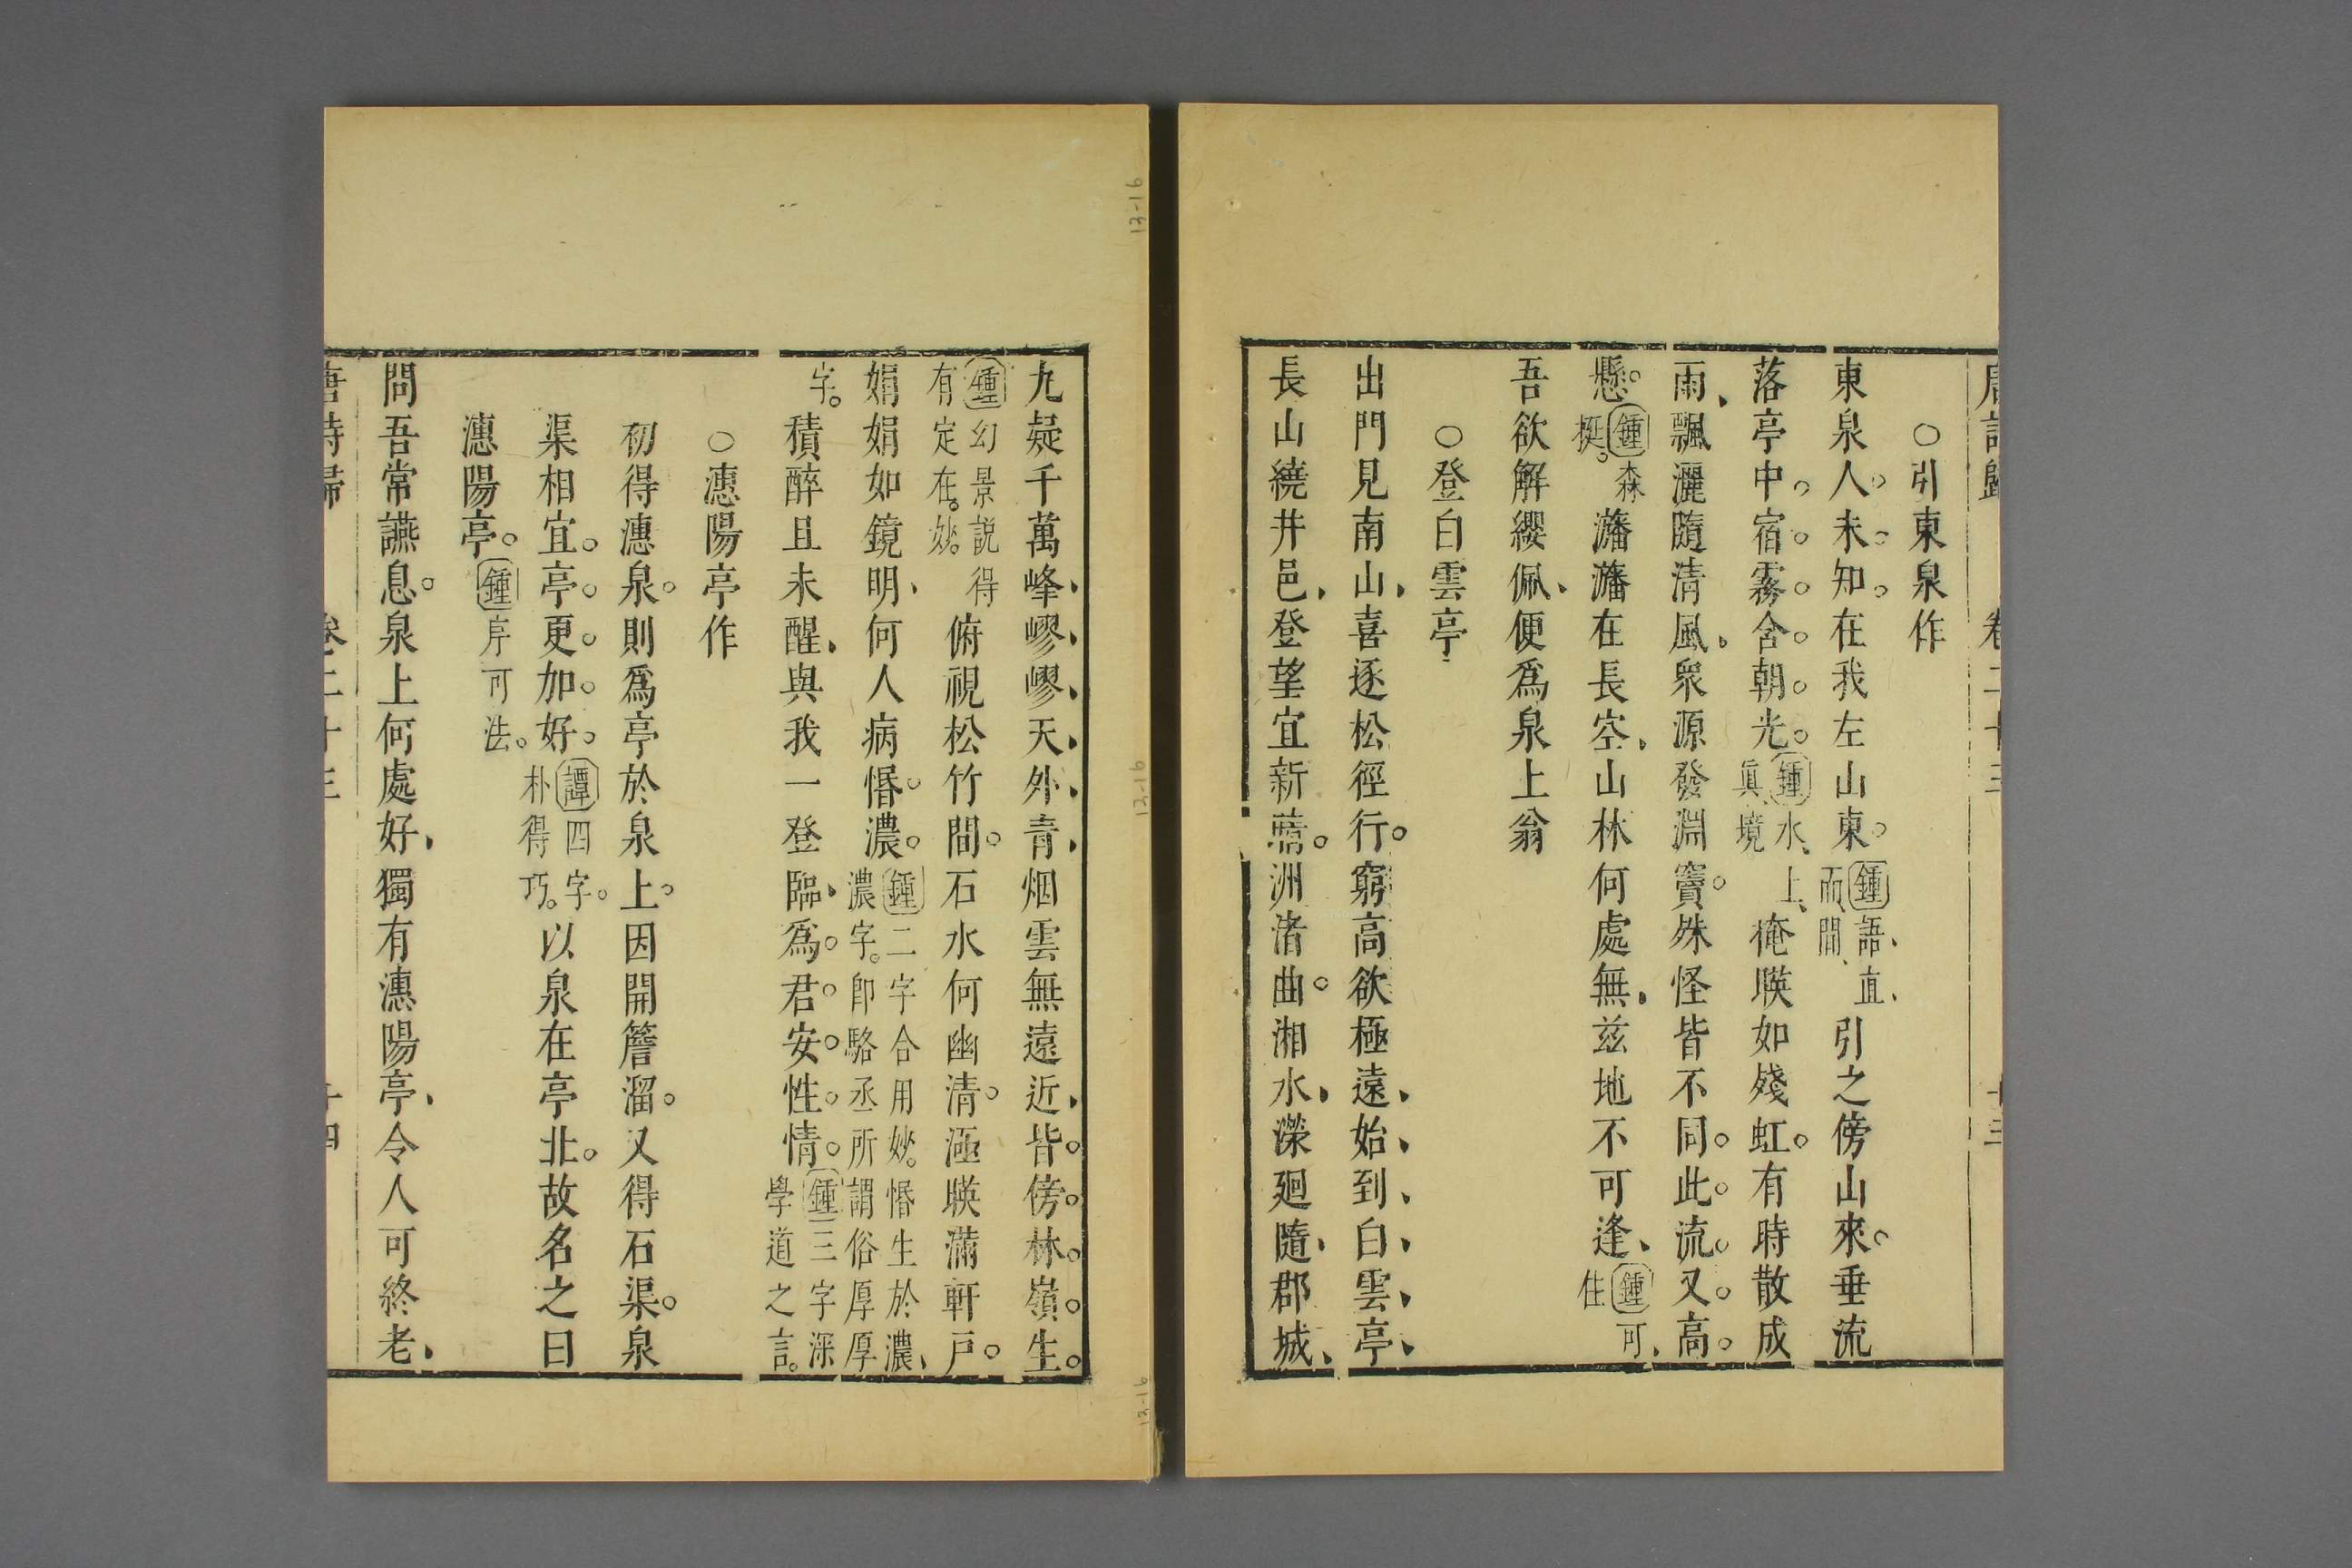 唐詩歸 卷二十三 十三
○引東泉作
東泉人。未。知。在我左山東。鍾語、直、而、間、引之傍山來。垂流
落亭中。宿。霧。含。朝。光。鍾水、上、眞境掩暎如殘虹。有時散成
雨、飄灑隨清風、衆源發淵竇。殊怪皆不同。此。流。又。高。
懸。鍾森挺。在長空、山林何處無、茲地不可逢、鍾可、住
吾欲解纓佩、便爲泉上翁
○登白雲亭
出門見南山、喜逐松徑行。窮高欲極遠、始、到、白、雲、亭、
長山繞井邑、登望宜新霽。洲渚曲。湘水、濚廻隨、郡城、
九疑千萬峰、嵺、嵺、天、外、青、烟雲無遠近、皆。傍。林。嶺。生。
鍾幻景説得有定在。妙。俯視松竹間。石水何幽清。涵暎滿軒戸。
娟娟如鏡明、何人病惛。濃。鍾二字合用妙。惛生於濃、濃字。卽駱丞所謂俗厚厚
字。積醉且未醒、與我一登臨、爲。君。安。性。情。鍾三字深學道之言。
○潓陽亭作
初得潓泉。則爲亭於泉上。因開簷溜。又得石渠。泉
渠相宜。亭。更。加。好。譚四字。朴得巧。以泉在亭北。故名之曰
潓陽亭。鍾序可法。
問吾常讌息。泉上何處好、獨有潓陽亭、令人可終老、
唐詩歸 卷二十三 十四